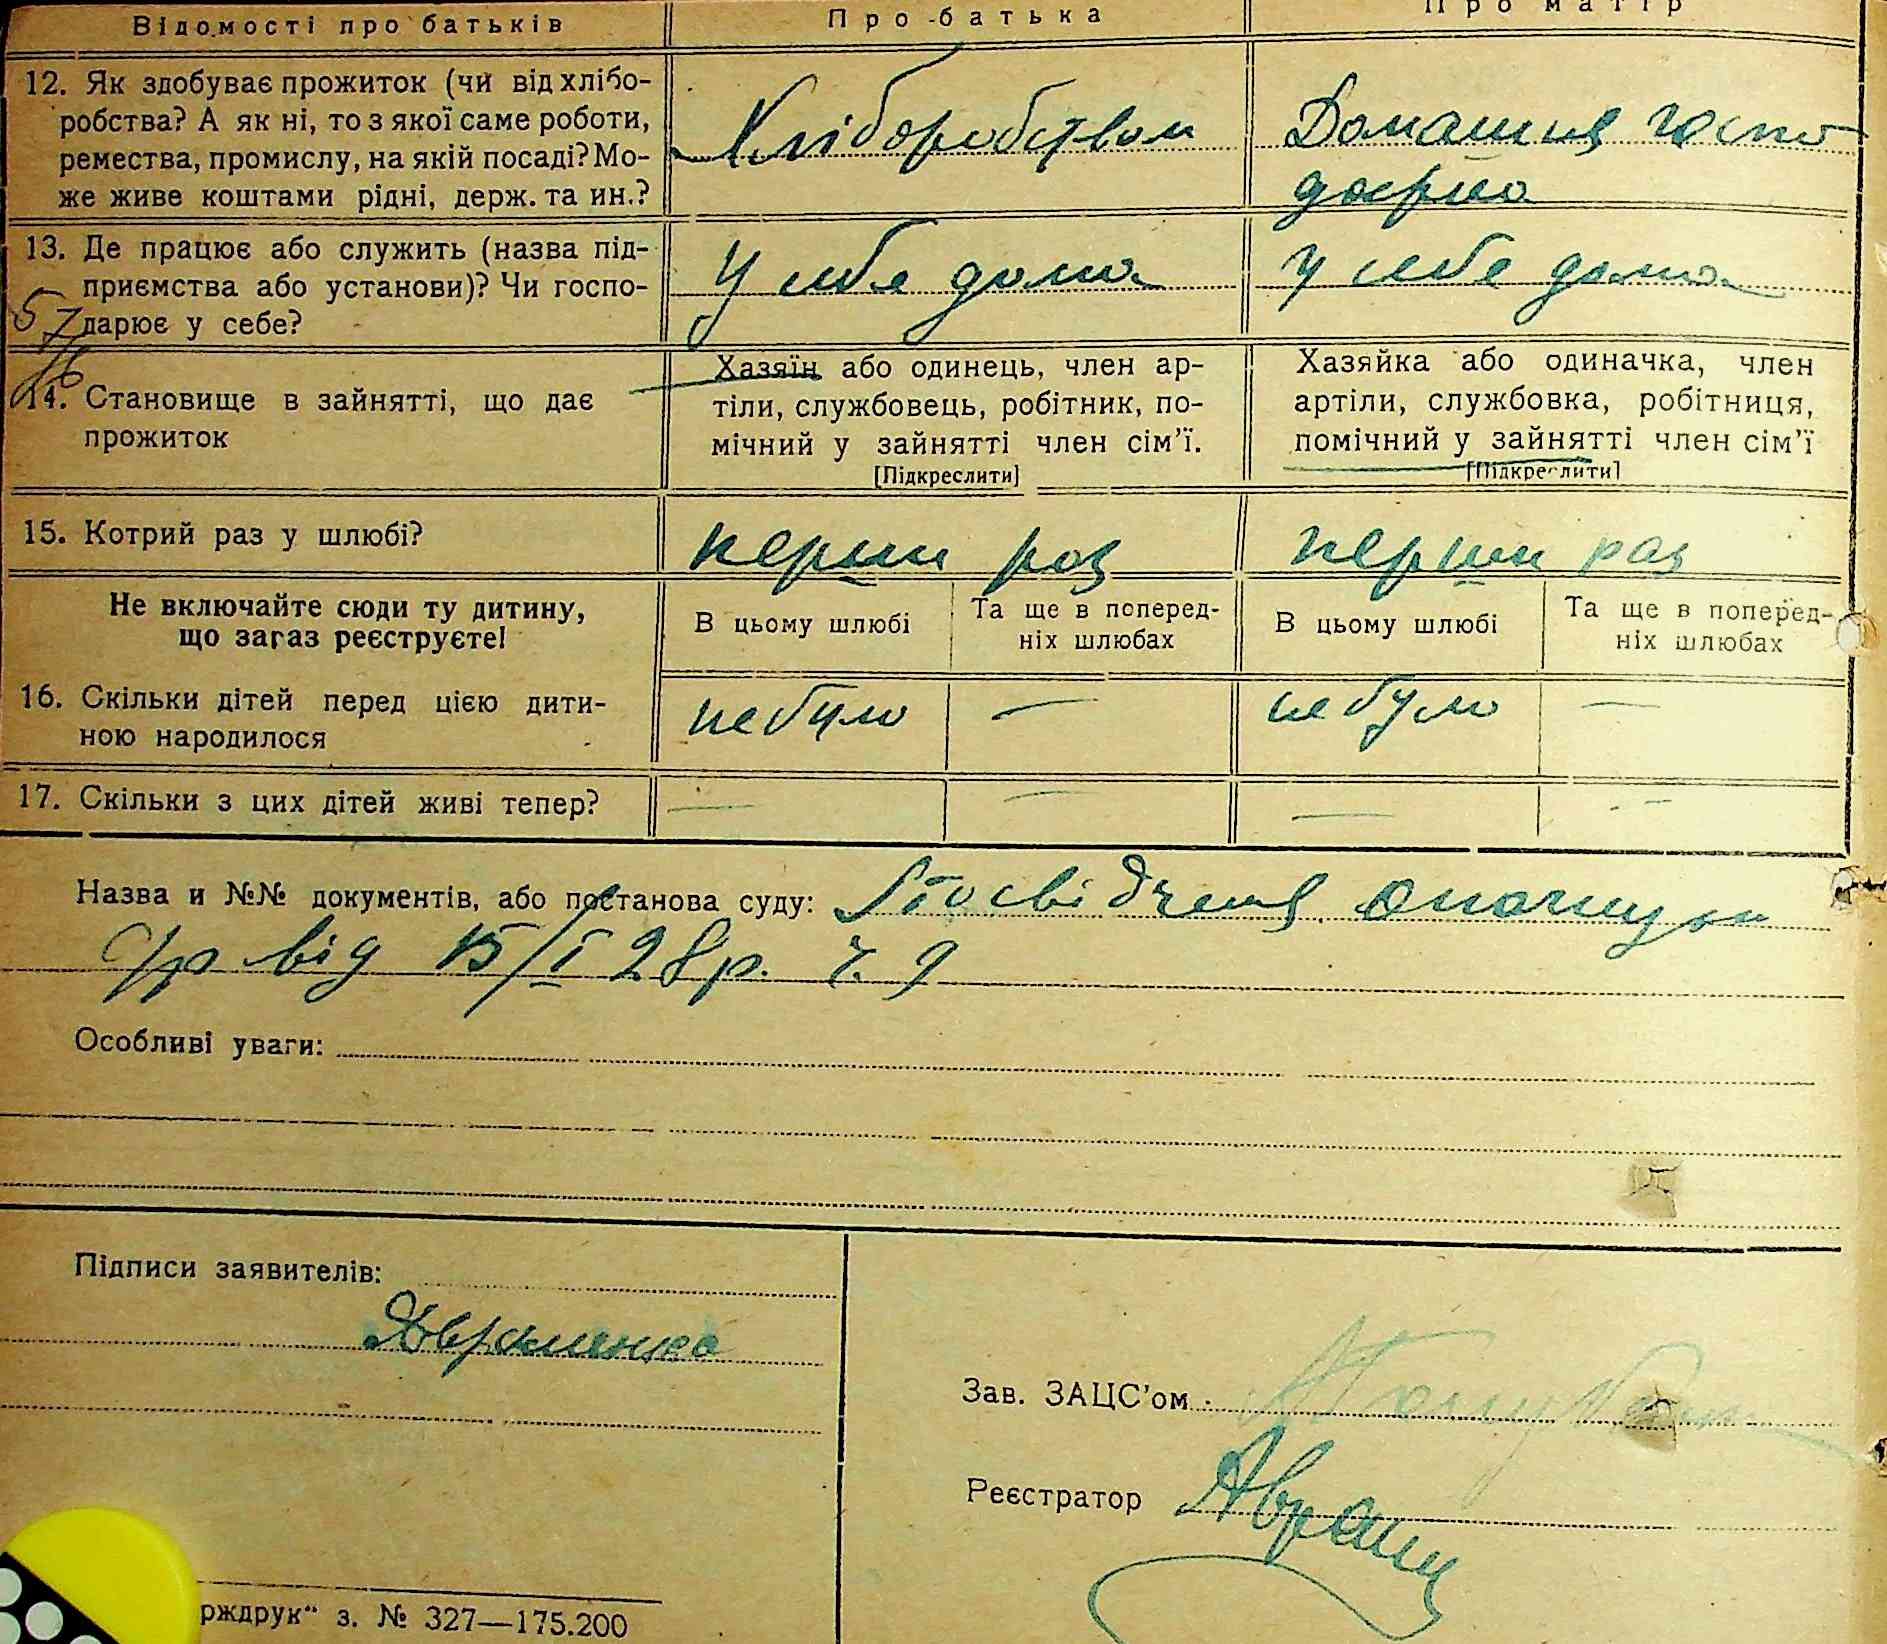 Відомості про батьків
Про батька
Про матір
12. Як здобуває прожиток (чи від хлібо-
робства? А як ні, то з якої саме роботи,
ремества, промислу, на якій посаді? Мо-
же живе коштами рідні, держ. та ин.?
Хліборобством
Домашня госпо
дарка
13. Де працює або служить (назва під-
приємства або установи)? Чи госпо-
дарює у себе?
У себе дома
У себе дома
57
14. Становище в зайнятті, що дає
прожиток
Хазяїн або одинець, член ар-
тіли, службовець, робітник, по-
мічний у зайнятті член сім'ї.
[Підкреслити]
Хазяйка або одиначка, член
артіли, службовка, робітниця,
помічний у зайнятті член сім'ї
[Підкреслити]
15. Котрий раз у шлюбі?
перши раз
перши раз
Не включайте сюди ту дитину,
що загаз реєструєте!
В цьому шлюбі
Та ще в поперед-
ніх шлюбах
В цьому шлюбі
Та ще в поперед-
ніх шлюбах
16. Скільки дітей перед цією дити-
ною народилося
небуло
—
небуло
—
17. Скільки з цих дітей живі тепер?
— — — —
Назва и №№ документів, або постанова суду: Посвідчення
від 15/I 28 р. ч. 9
Особливі уваги:
Підписи заявителів:
Авраменко
Зав. ЗАЦС'ом
Реєстратор
рждрук" з. № 327—175.200